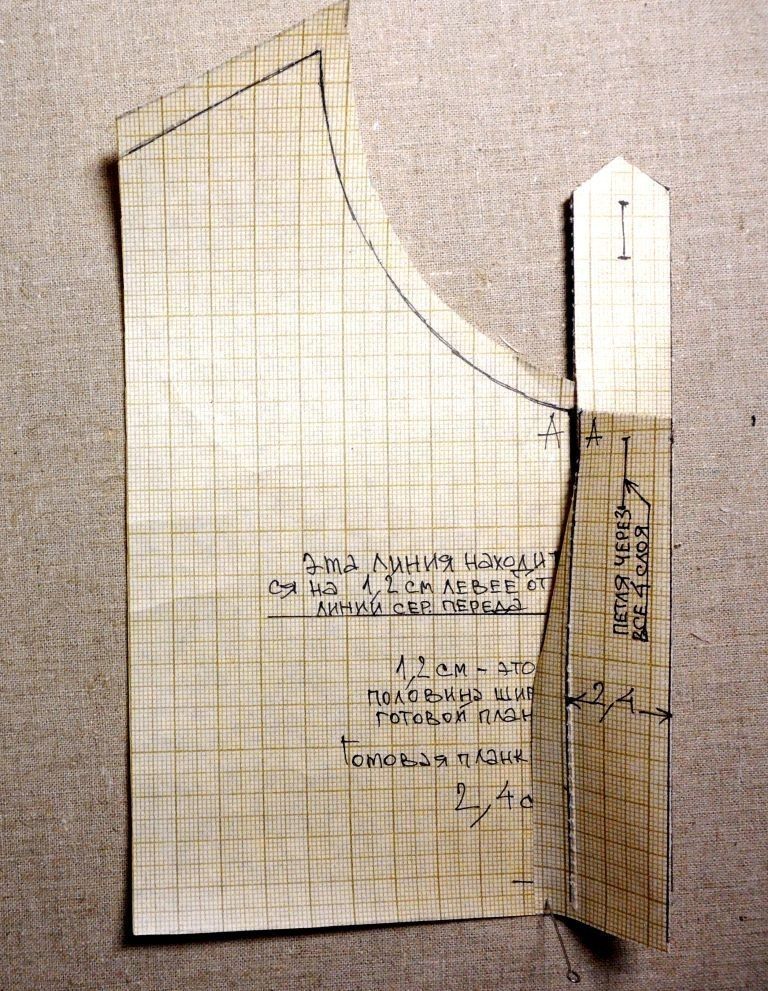 А А
эта линия находит
ся на 1,2 см левее от
линии сер. переда
1,2 см – это
половина шир
готовой план
Готовая планк
2,4 с
ПЕТЛЯ ЧЕРЕЗ
ВСЕ 4 СЛОЯ
2,4